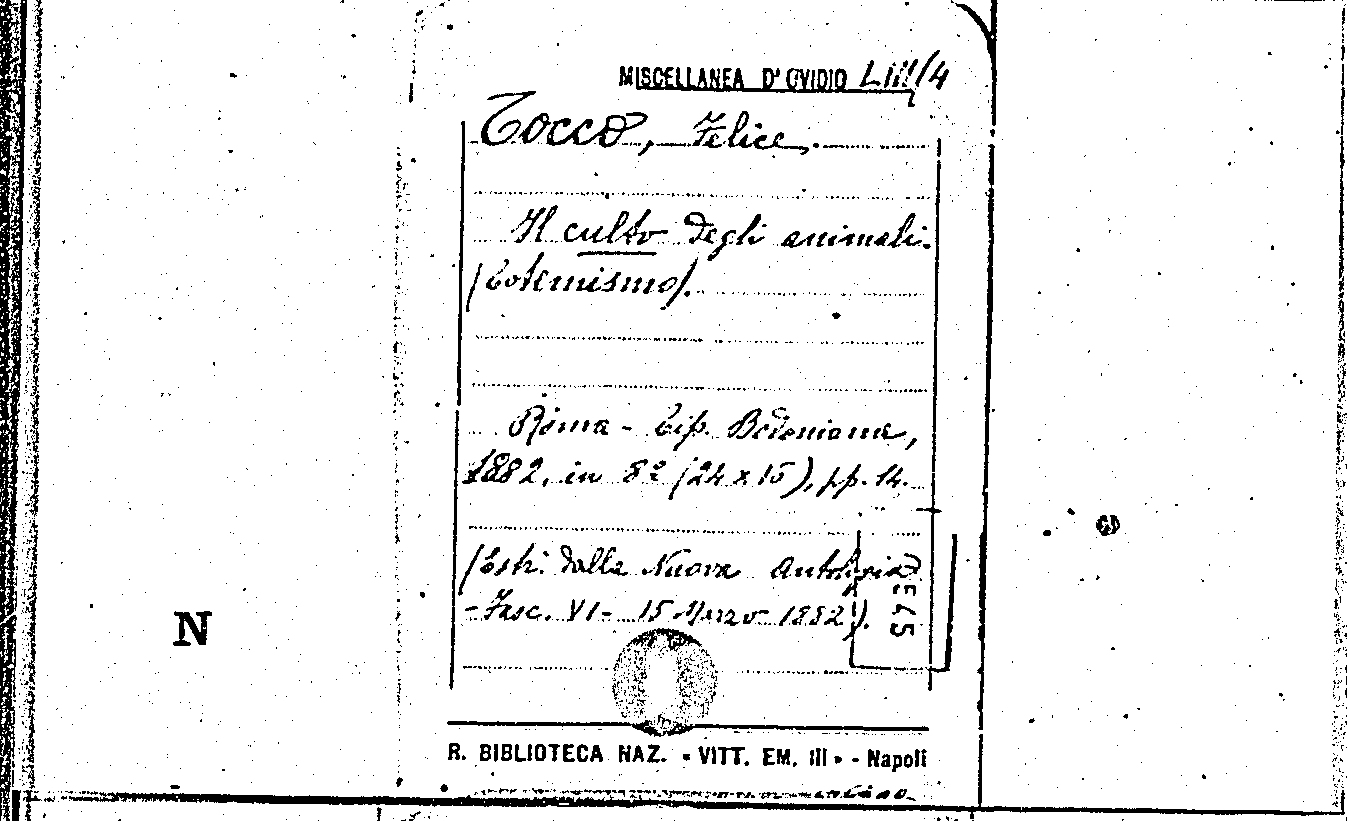 MISCELLANEA D'OVIDIO LIII/4
Tocco, Felice.
Il culto degli animali.
(Totemismo).
Roma - Tip. Bodoniana,
1882, in 8º (24 x 15), pp. 14.
(Estr. dalla Nuova Antologia
- Fasc. VI - 15 Marzo 1882).
N
R. BIBLIOTECA NAZ. « VITT. EM. III » - Napoli